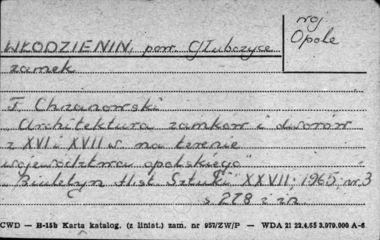 woj
Opole
WŁODZIENIN, pow. Głubczyce
zamek
T. Chrzanowski
„Architektura zamków i dworów
z XVI i XVII w. na terenie
województwa opolskiego"
„Biuletyn Hist. Sztuki" XXVII; 1965; nr 3
s. 278 z zn
CWD — B-15b Karta katalog. (z liniat.) zam. nr 957/ZW/P — WDA 21 22.4.65 3.070.000 A-6